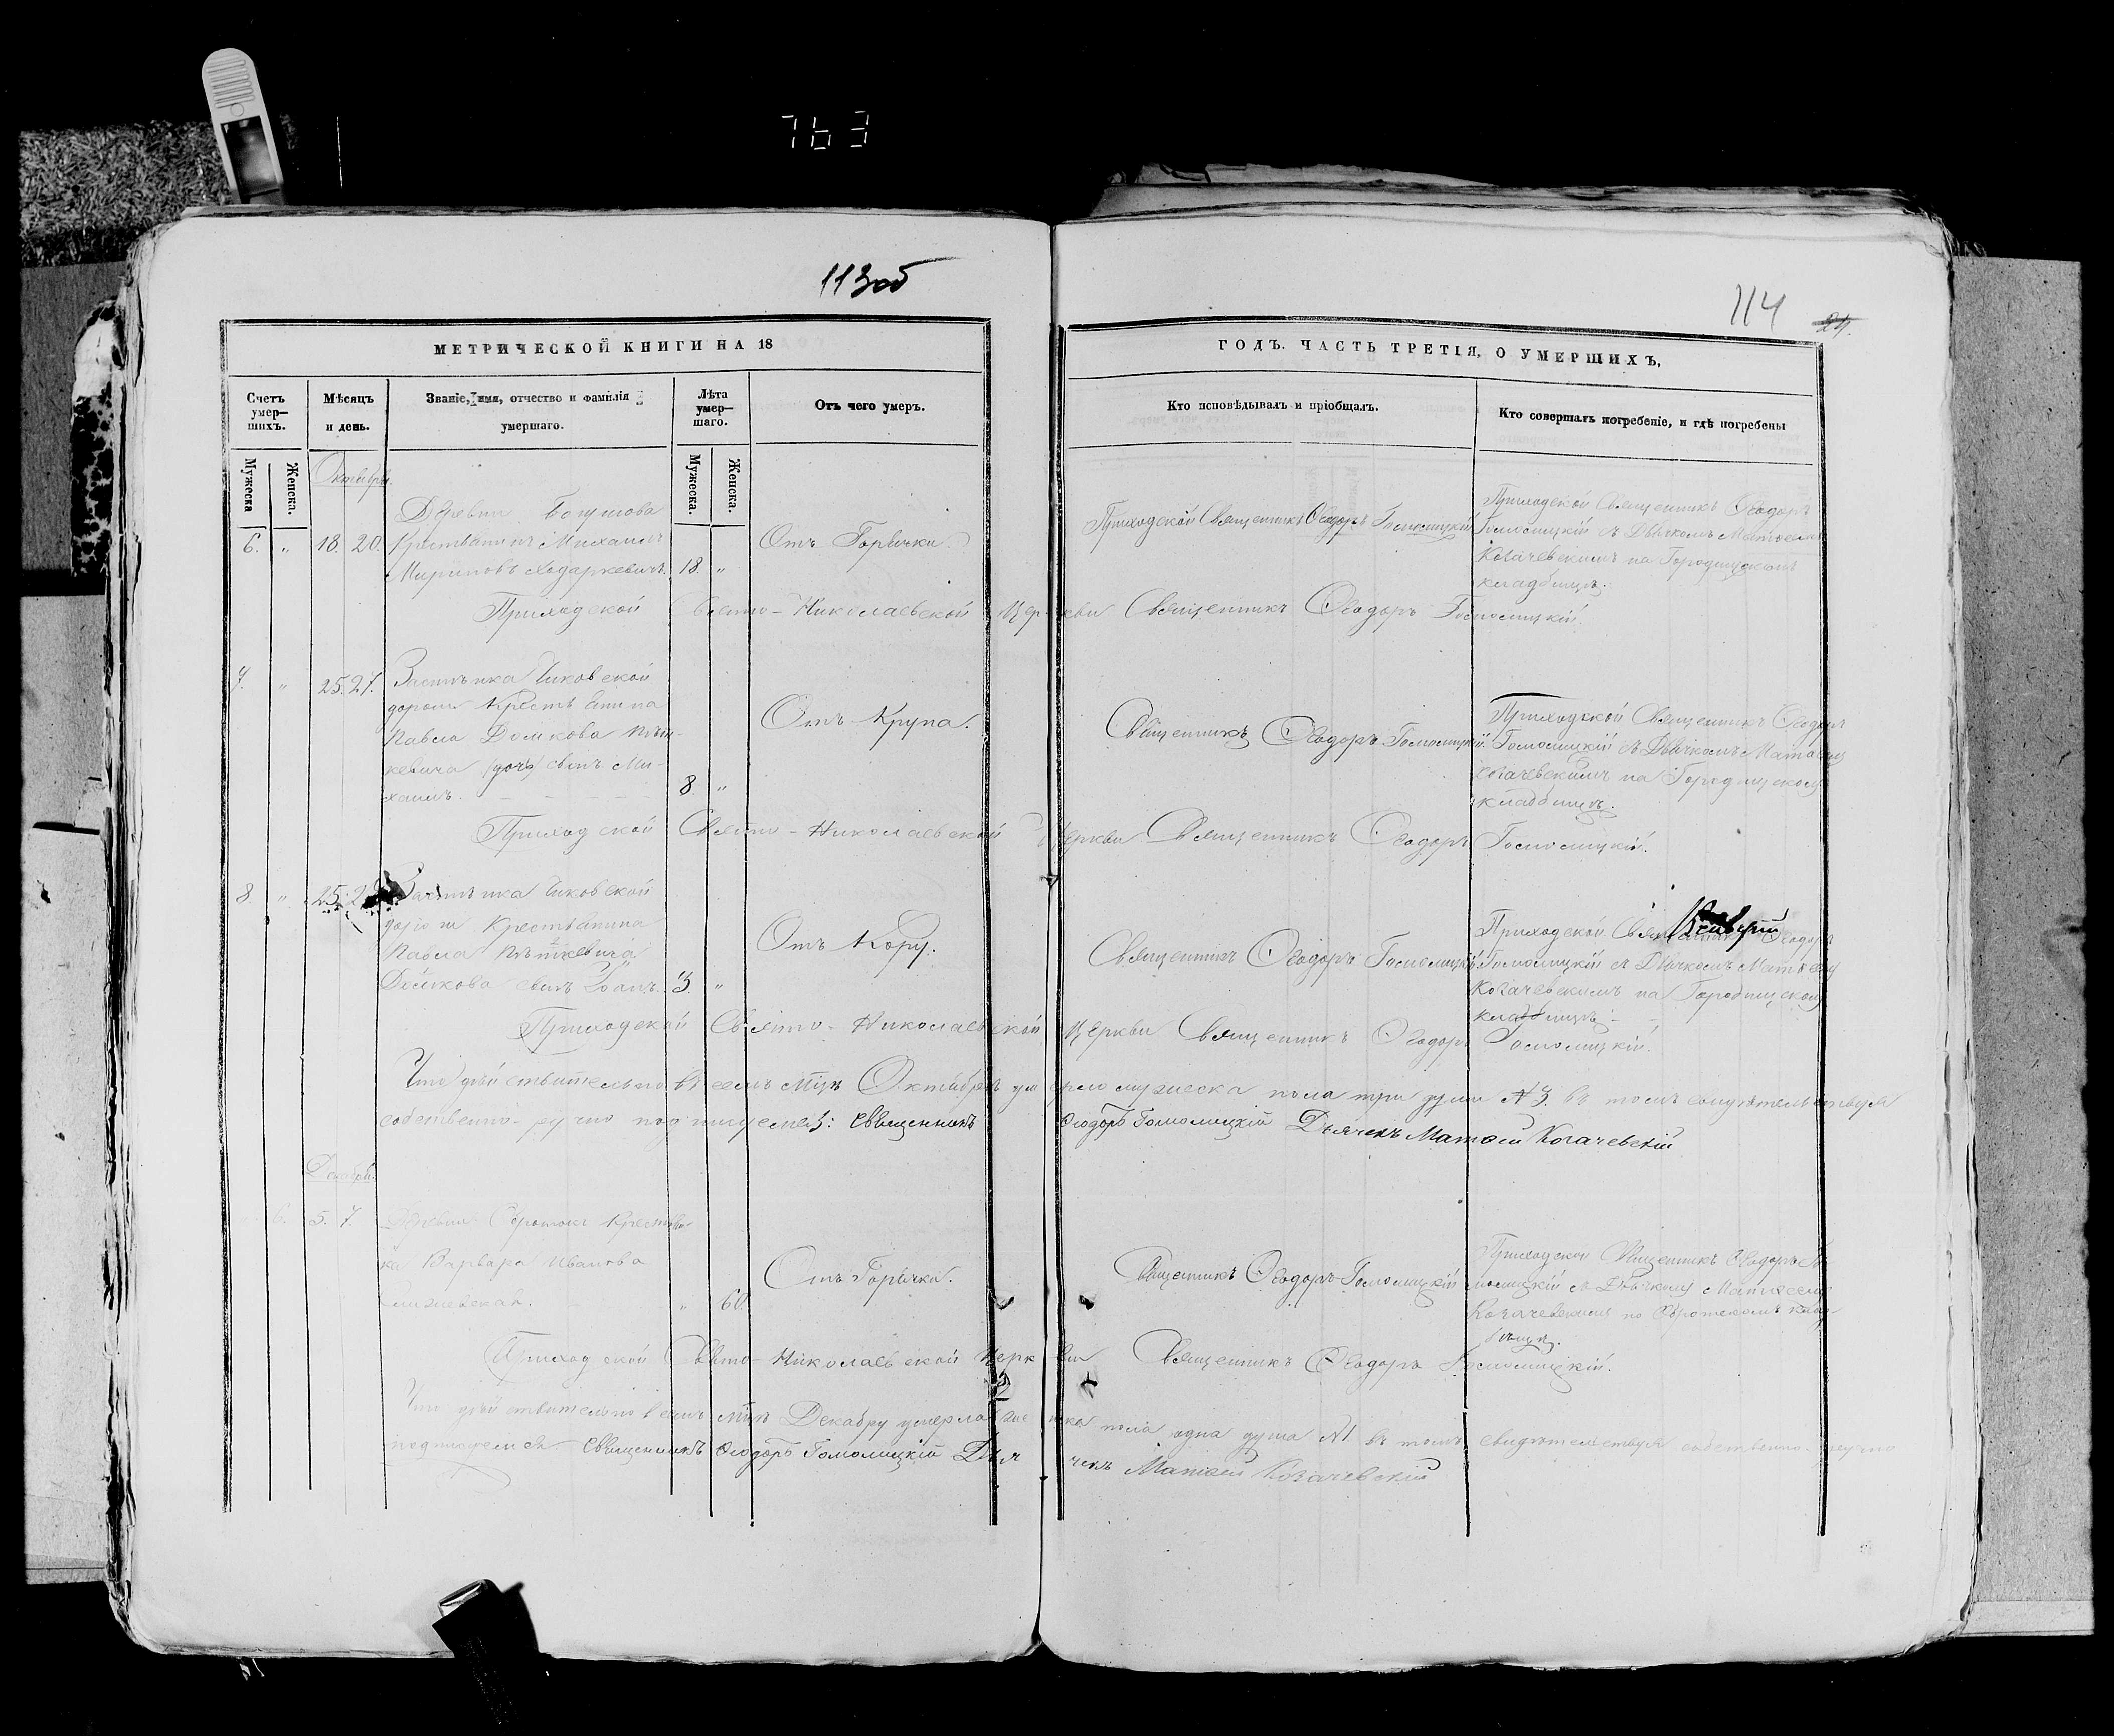 763
113 об
114
24.
МЕТРИЧЕСКОЙ КНИГИ НА 18
Счетъ умер—шихъ.
Мѣсяцъ и день.
Званіе, имя, отчество и фамилія умершаго.
Лѣта умер—шаго.
Отъ чего умеръ.
Мужеска
Женска.
Мужеска.
Женска.
ГОДЪ. ЧАСТЬ ТРЕТІЯ, О УМЕРШИХЪ,
Кто исповѣдывалъ и пріобщалъ.
Кто совершалъ погребеніе, и гдѣ погребены
Октябрь.
6. „ 18. 20.
Деревни
Крестьянинъ Михаилъ
18. „
Отъ Горячки.
Приходской Священникъ Ѳеодоръ Гомолицкій
Приходской Священникъ Ѳеодоръ
Гомолицкій съ Дьячкомъ Матѳеемъ
Козачевскимъ на Городищскомъ
кладбищѣ.
Приходской Свято-Николаевской Церкви Священникъ Ѳеодоръ Гомолицкій.
7. „ 25. 27.
Застѣнка
Крестьянина
Павла
сынъ Ми-
хаилъ.
8 „
Отъ Крупа.
Священникъ Ѳеодоръ Гомолицкій.
Приходской Священникъ Ѳеодоръ
Гомолицкій съ Дьячкомъ Матѳеемъ
Козачевскимъ на Городищском
кладбищѣ.
Приходской Свято-Николаевской Церкви Священникъ Ѳеодоръ Гомолицкій.
8 „ 25. 2
Застѣнка
Крестьянина
Павла
сынъ Іоанъ. 3. „
Отъ Кору.
Священникъ Ѳеодоръ Гомолицкій
Приходской Священникъ Ѳеодоръ
Гомолицкій съ Дьячкомъ Матѳеем
Козачевскимъ на Городищском
кладбищѣ.
Приходской Свято-Николаевской Церкви Священникъ Ѳеодоръ Гомолицкій.
Что дѣйствительно въ семъ мцѣ Октябрѣ умерло мужеска пола три души №3. въ томъ свидѣтельствуя
собственно-ручно подписуемся: Священникъ Ѳеодоръ Гомолицкій Дьячекъ Матѳей Козачевскій
Декабрь.
6. 5. 7.
Деревни Крестьян-
ка Варвара Иванова
„ 60.
Отъ Горячки.
Священникъ Ѳеодоръ Гомолицкій
Приходской Священникъ Ѳеодоръ Го-
молицкій съ Дьячкомъ Матѳеемъ
Козачевскимъ клад-
бищѣ.
Приходской Свято-Николаевской Церкви Священникъ Ѳеодоръ Гомолицкій.
Что дѣйствительно въ семъ мцѣ Декабру умерла женска пола одна душа №1 въ томъ свидѣтельствуя собственно-ручно
подписуемся Священникъ Ѳеодоръ Гомолицкій Дьячекъ Матѳей Козачевскій